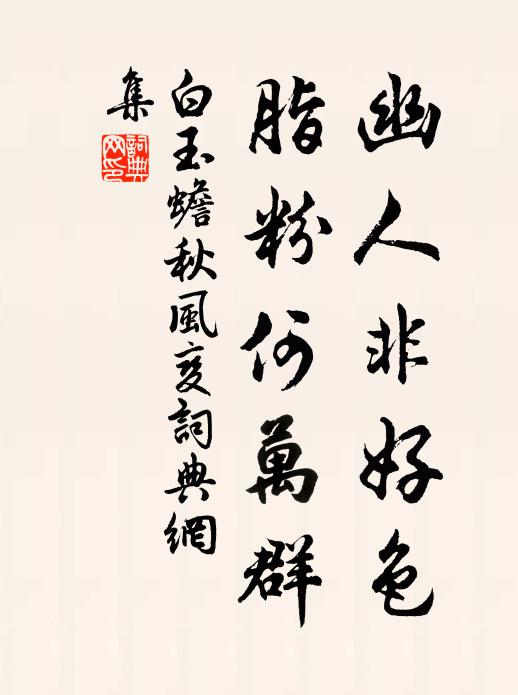 幽人非好色
脂粉何萬群
白玉蟾秋風变詞典網
集
詞典網印